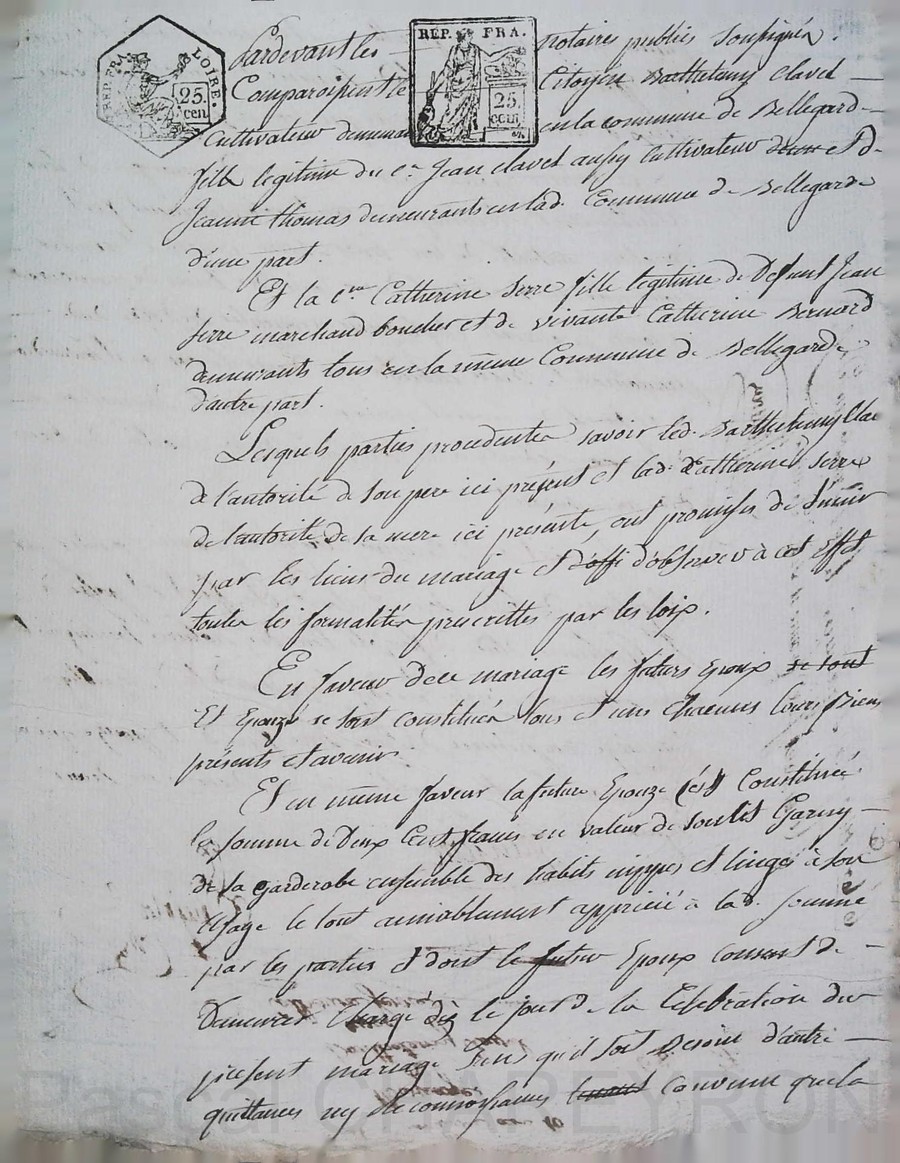 REP. FRA. LOIRE. 25. cen.
REP. FRA. 25. cen
Pardevant les notaires publics soussignés.
Comparoissent le Citoyen Barthelemy Clavel
Cultivateur en la commune de Bellegard
fils legitime du c.n Jean clavel aussy Cultivateur et de
Jeanne thomas demeurants en lad. Commune de Bellegarde
d'une part.
Et la c.ne Catherine Serre fille legitime de Defunt Jean
Serre marchand boucher et de vivante Catherine Bernard
demeurants tous en la même Commune de Bellegarde
d'autre part.
Lesquels parties procedentes savoir led. Barthelemy Cla
de l'autorité de son pere ici présent et lad. Catherine Serre
de l'autorité de sa mere ici présente, ont promises de s'unir
par les liens du mariage et d'observer à cet effet
toutes les formalités prescrittes par les loix.
En faveur de ce mariage les futurs Epoux se sont
Et Epouze se sont constitués tous et uns chacuns leurs Biens
présents et avenir.
Et en même faveur la future Epouze s'est Constituée
la somme de Deux Cent francs en valeur de
de sa garderobe ensemble des habits nippes et linges à son
usage le tout amiablement apprécié à lad. somme
par les parties et dont le futur Epoux consent de
Demeurer chargé dès le jour de la Celebration du
présent mariage sans qu'il soit Besoin d'autre
quittances ny Reconnoissances convenu que la
Pascal CHAPEYRON